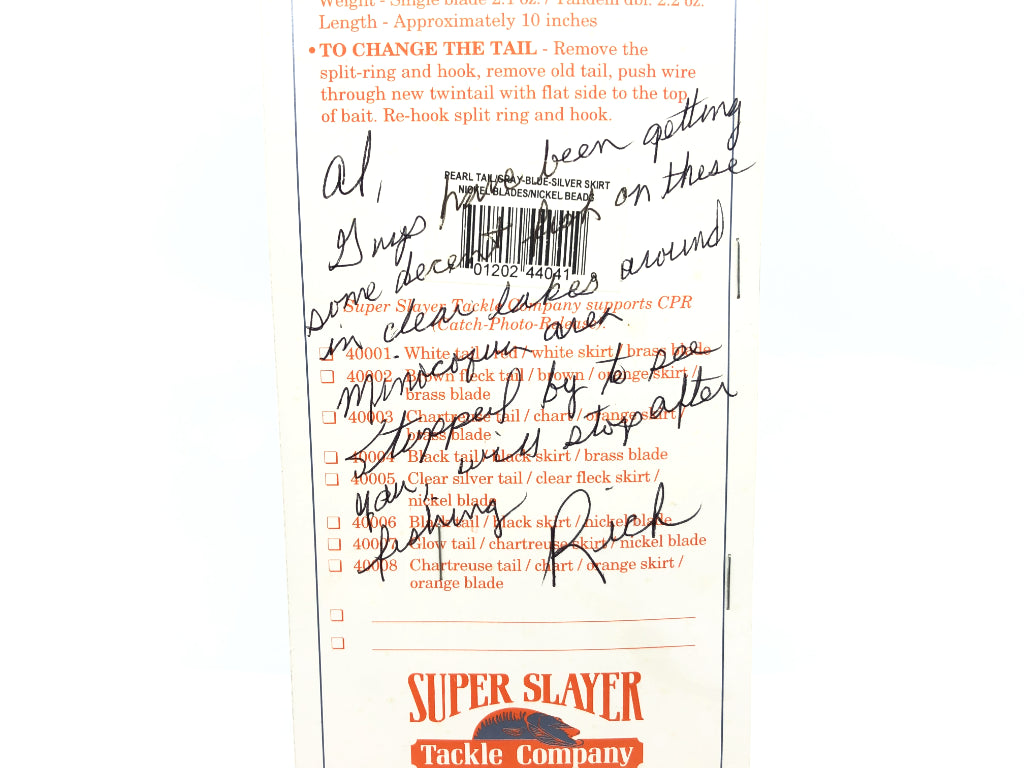 Weight - Single blade 2.1 oz. / Tandem dbl. 2.2 oz.
Length - Approximately 10 inches
• TO CHANGE THE TAIL - Remove the
split-ring and hook, remove old tail, push wire
through new twintail with flat side to the top
of bait. Re-hook split ring and hook.
Al,
Guys have been getting
some decent fish on these
in clear lakes around
Minocqua area
Stopped by to see
you, will stop after
fishing Rich
PEARL TAIL/GRAY-BLUE-SILVER SKIRT
NICKEL BLADES/NICKEL BEADS
01202 44041
Super Slayer Tackle Company supports CPR
(Catch-Photo-Release).
40001 - White tail / red / white skirt / brass blade
40002 Brown fleck tail / brown / orange skirt /
brass blade
40003 Chartreuse tail / chart / orange skirt /
brass blade
40004 Black tail / black skirt / brass blade
40005 Clear silver tail / clear fleck skirt /
nickel blade
40006 Black tail / black skirt / nickel blade
40007 Glow tail / chartreuse skirt / nickel blade
40008 Chartreuse tail / chart / orange skirt /
orange blade
SUPER SLAYER
Tackle Company